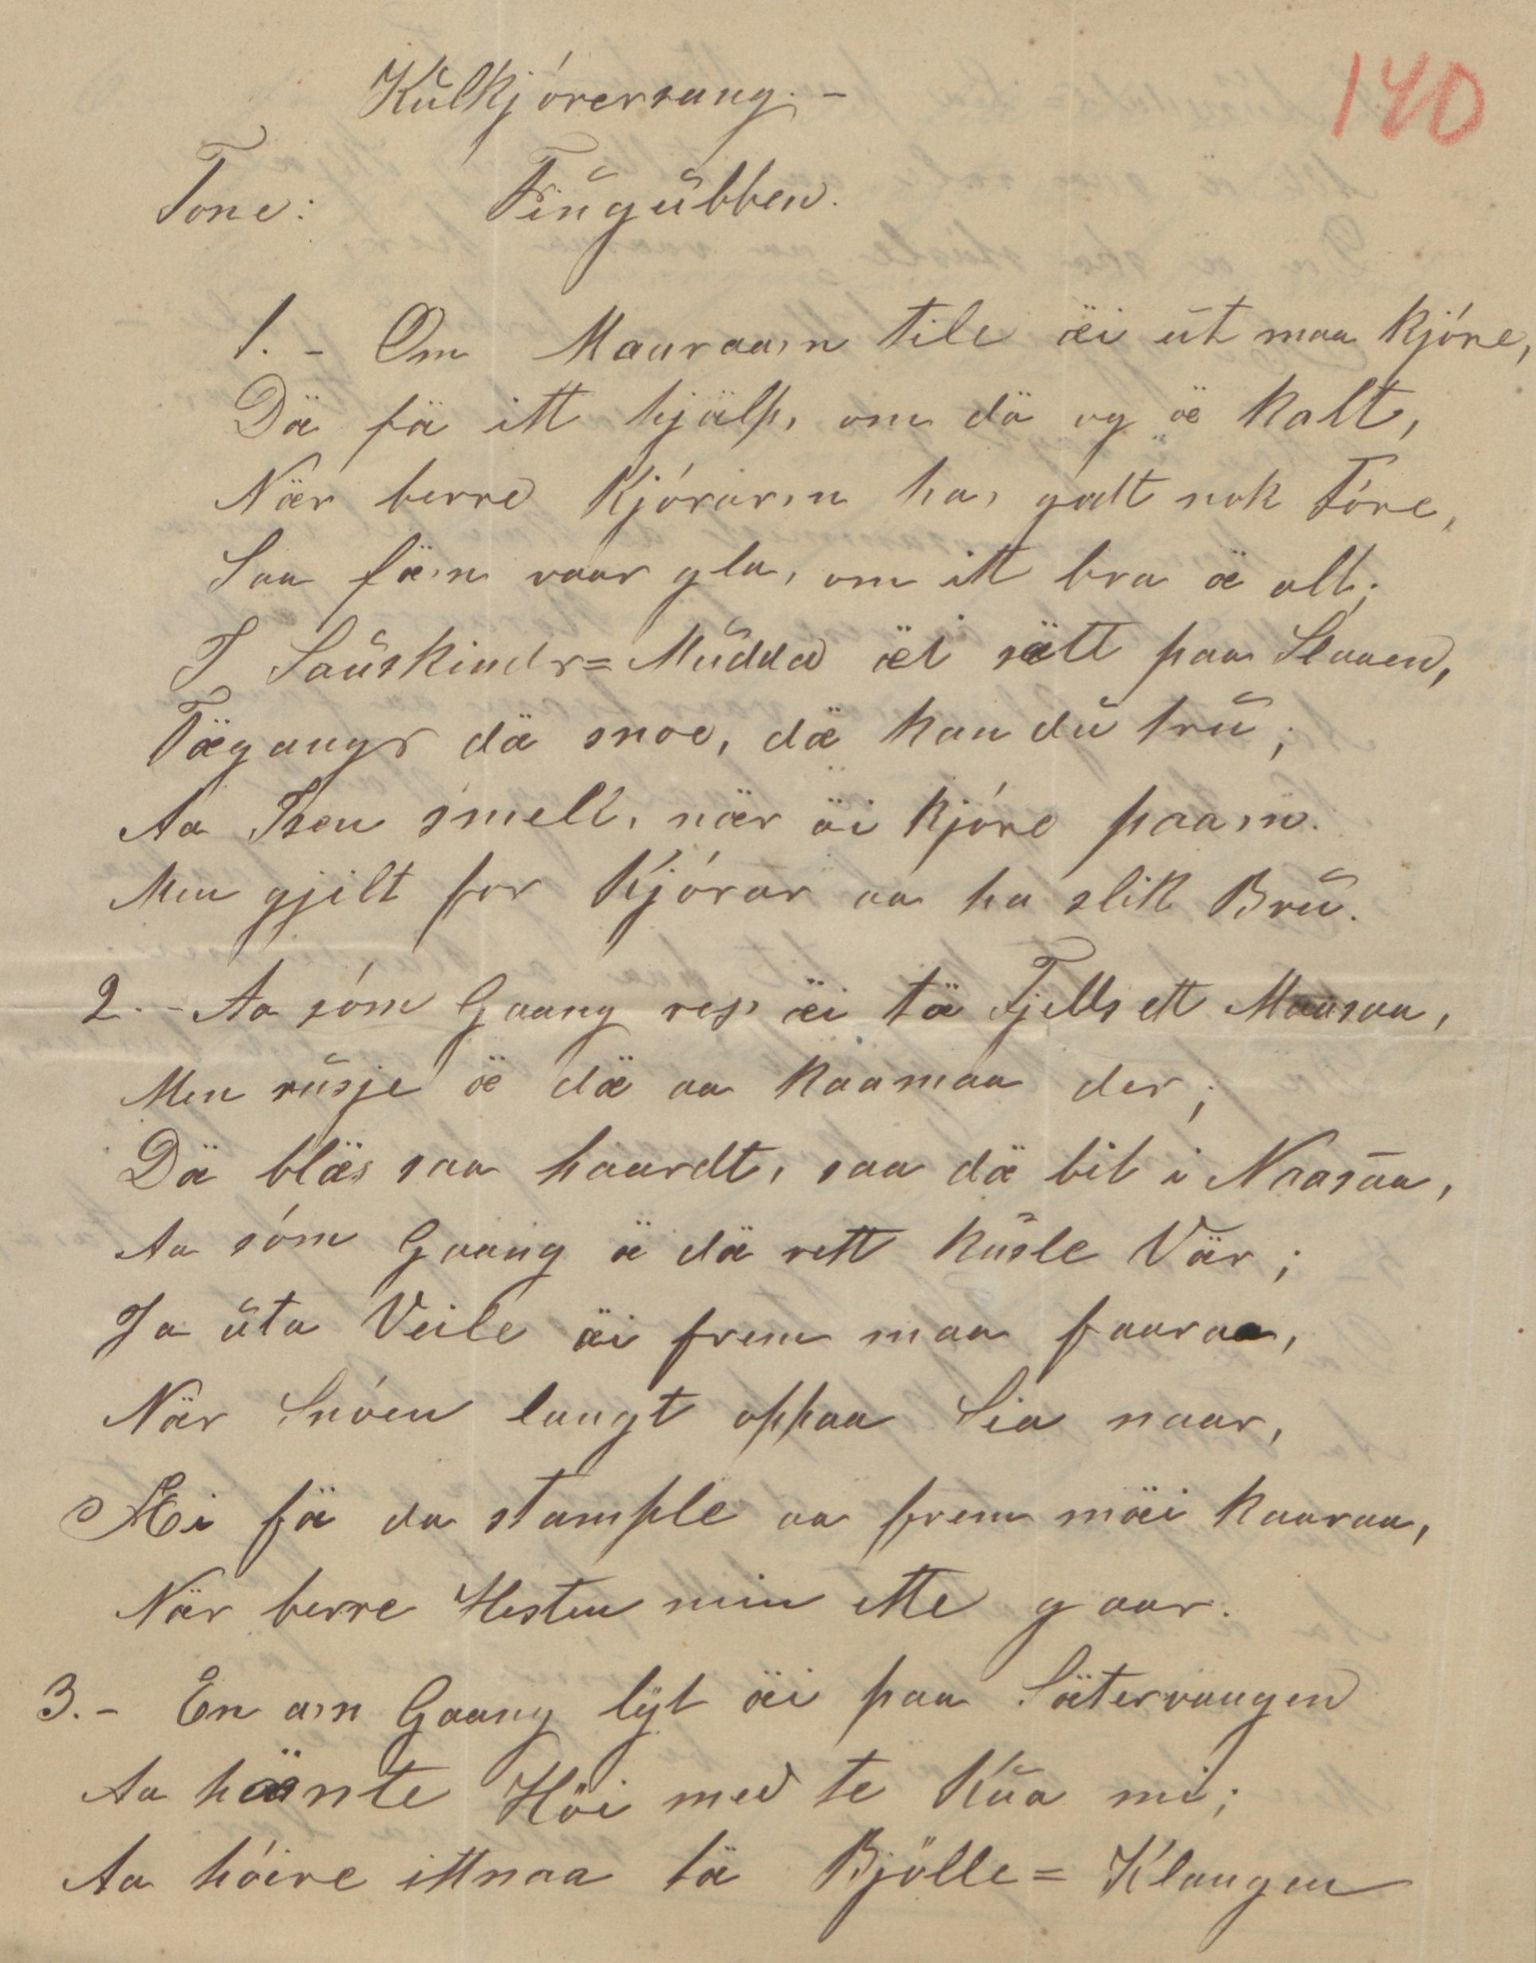 140
Kulkjórersang. –
Tone: Fingubben.
1. – Om Mauraa'n tile äi ut maa kjóre,
Dä fä itt hjälp, om dä og ä kalt,
När berre Kjórar'n ha' godt nok Fóre,
Saa fä'n vaar gla, om itt bra ä alt;
I Sauskinds=Mudda äi sätt paa Slaaen,
Tägangs dä snoe, dä kan du tru;
Aa Isen smell, när äi kjóre paa'n.
Men gjilt for Kjórar aa ha slik Bru.
2. – Aa sóm Gaang res' äi tä Fjells ett Maasaa,
Men rusje ä dä aa kaamaa der;
Dä bläs saa haardt, saa dä bit i Naasaa,
Aa sóm Gaang ä dä rett kusle Vär;
Ja uta Veile äi frem maa faaraa,
När Snóen langt oppaa Sia naar,
Æi fä da stample aa frem mäi kaaraa,
När berre Hesten min itte gaar.
3. – En a'n Gaang lyt äi paa Sätervangen
Aa hänte Höi med te Kua mi;
Aa hóire ittnaa tä Bjölle=Klangen